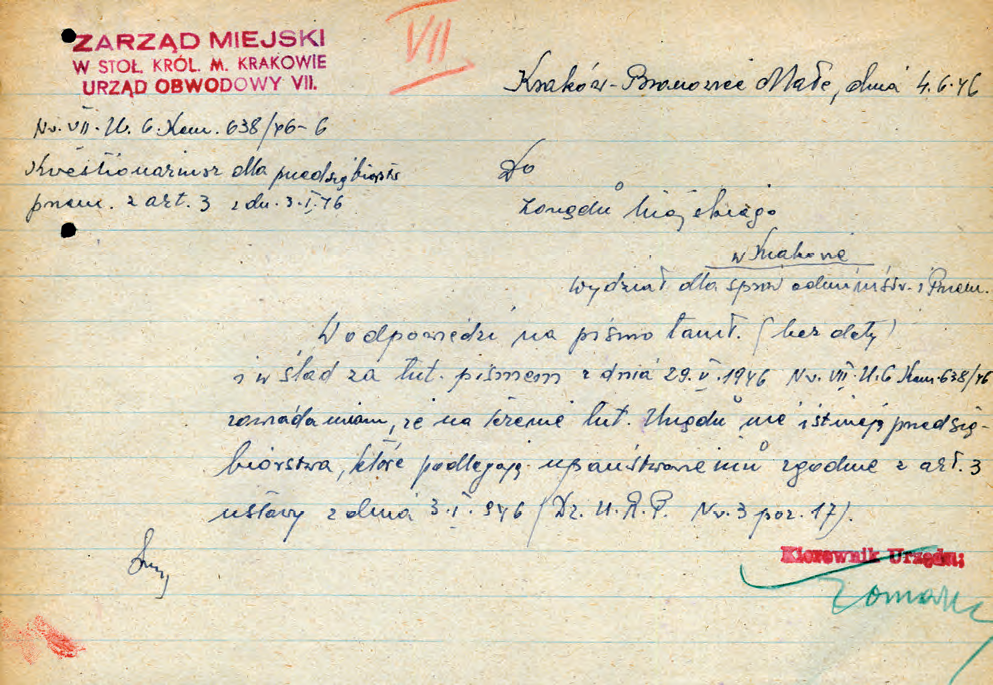 ZARZĄD MIEJSKI
W STOŁ. KRÓL. M. KRAKOWIE
URZĄD OBWODOWY VII.
VII
Kraków-Bronowice Małe, dnia 4.6.46
Nr. VII. U. G. Kem. 638/46-6
Kwestionariusz dla przedsiębiorstw
przem. z art. 3 z dn. 3.I.46
Do
Zarządu Miejskiego
w Krakowie
Wydział dla spraw administr. i Przem.
W odpowiedzi na pismo tamt. (bez daty)
i w ślad za tut. pismem z dnia 29.V.1946 Nr. VII. U.G Kem. 638/46
zawiadamiam, że na terenie tut. Urzędu nie istnieją przedsię-
biorstwa, które podlegają upaństwowieniu zgodnie z art. 3
ustawy z dnia 3.I.946 (Dz. U. R. P. Nr. 3 poz. 17).
Kierownik Urzędu: